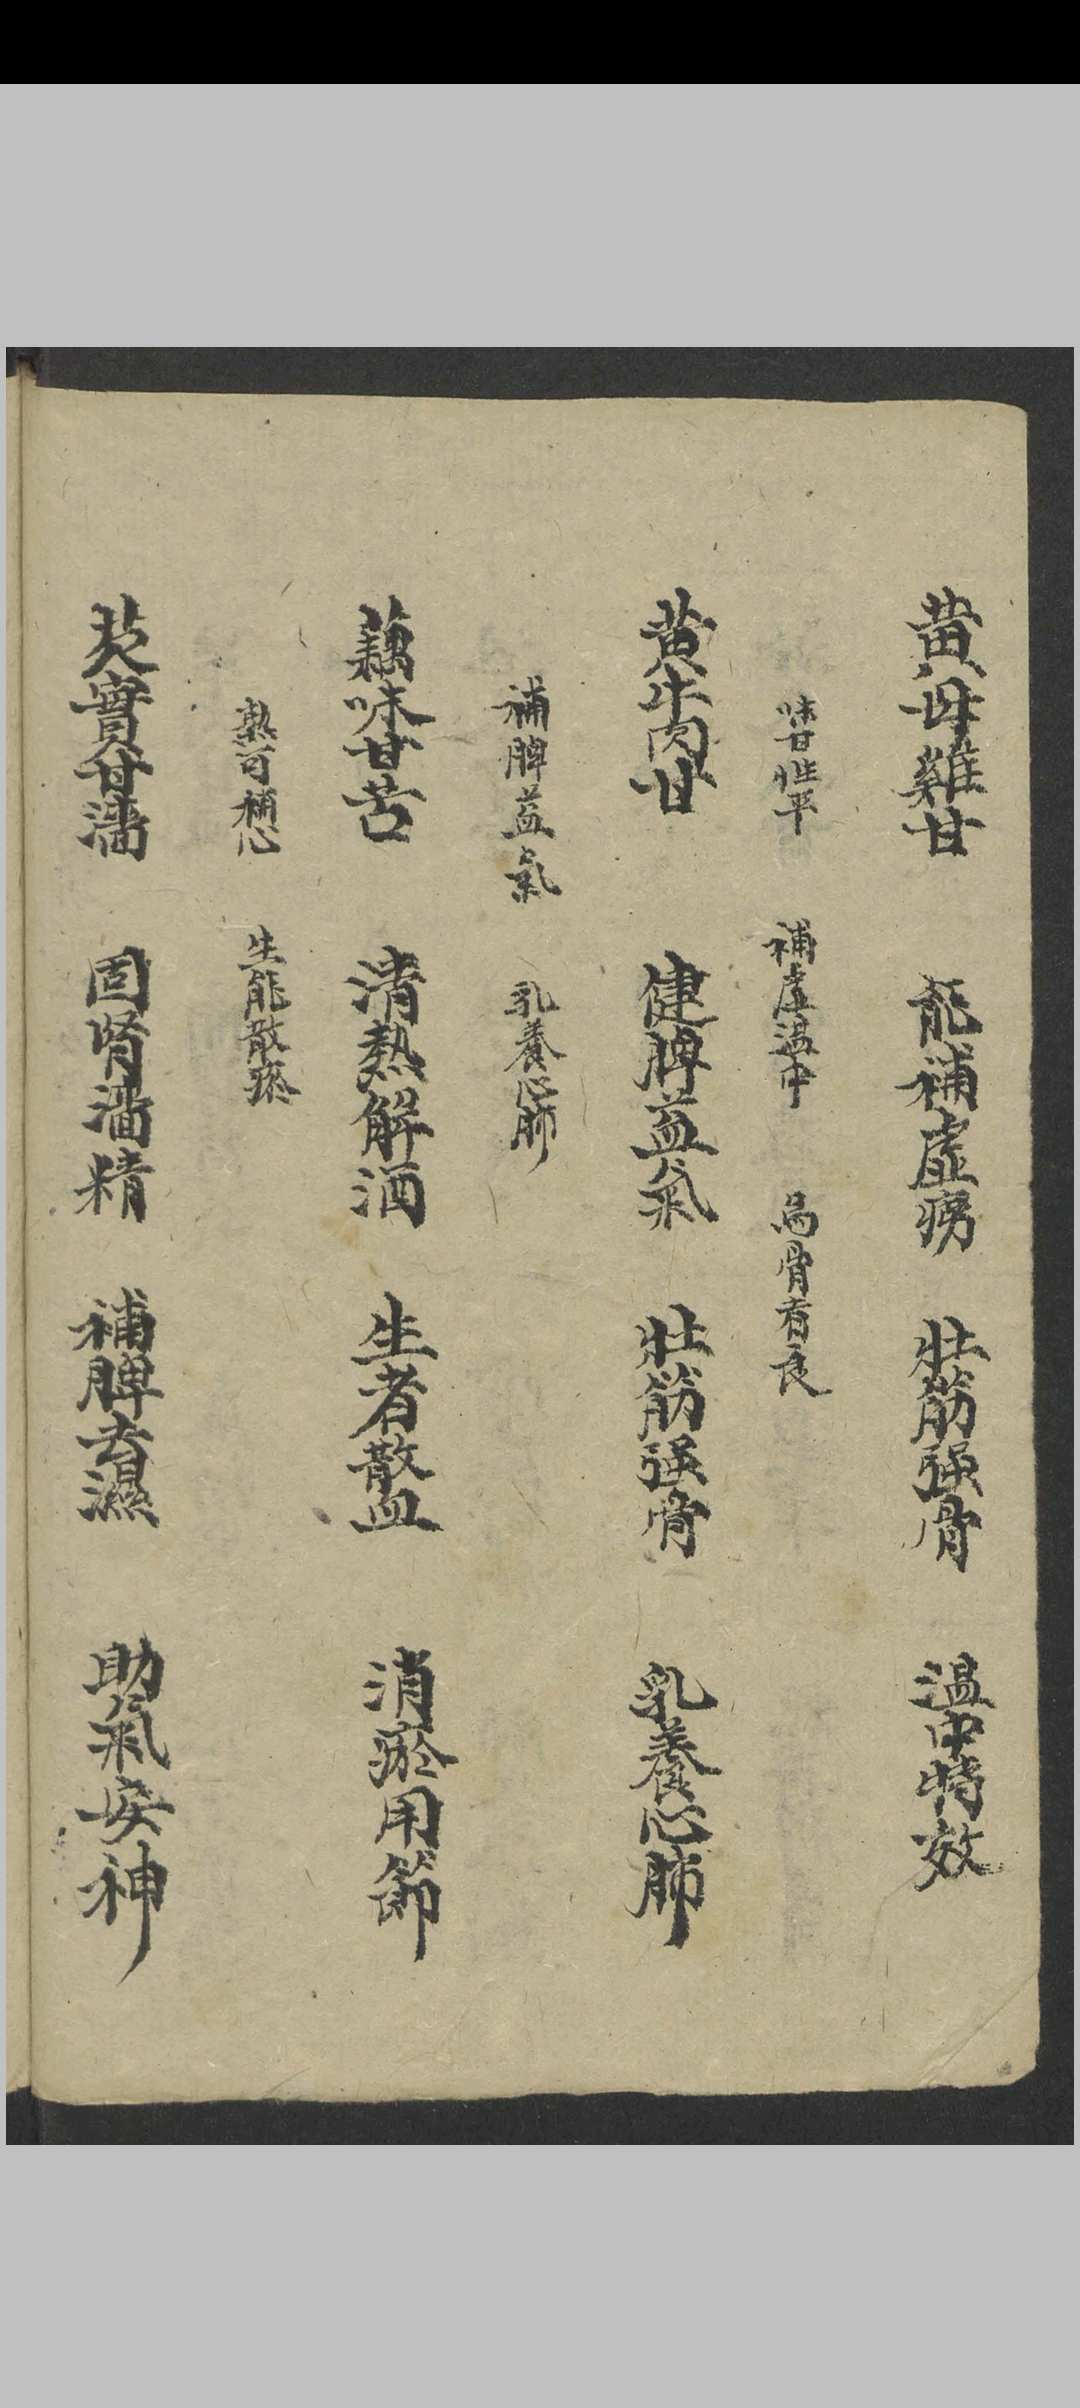 黄母雞甘 能補虛癆 壯筋强骨 溫中特效
味甘性平 補虛溫中 骨有良
黄牛肉甘 健脾益氣 壯筋强骨 乳養心肺
補脾益氣 乳養心肺
藕味甘苦 清熱解酒 生者散血 消瘀用節
熟可補心 生能散瘀
芡實甘濇 固腎濇精 補脾去濕 助氣安神